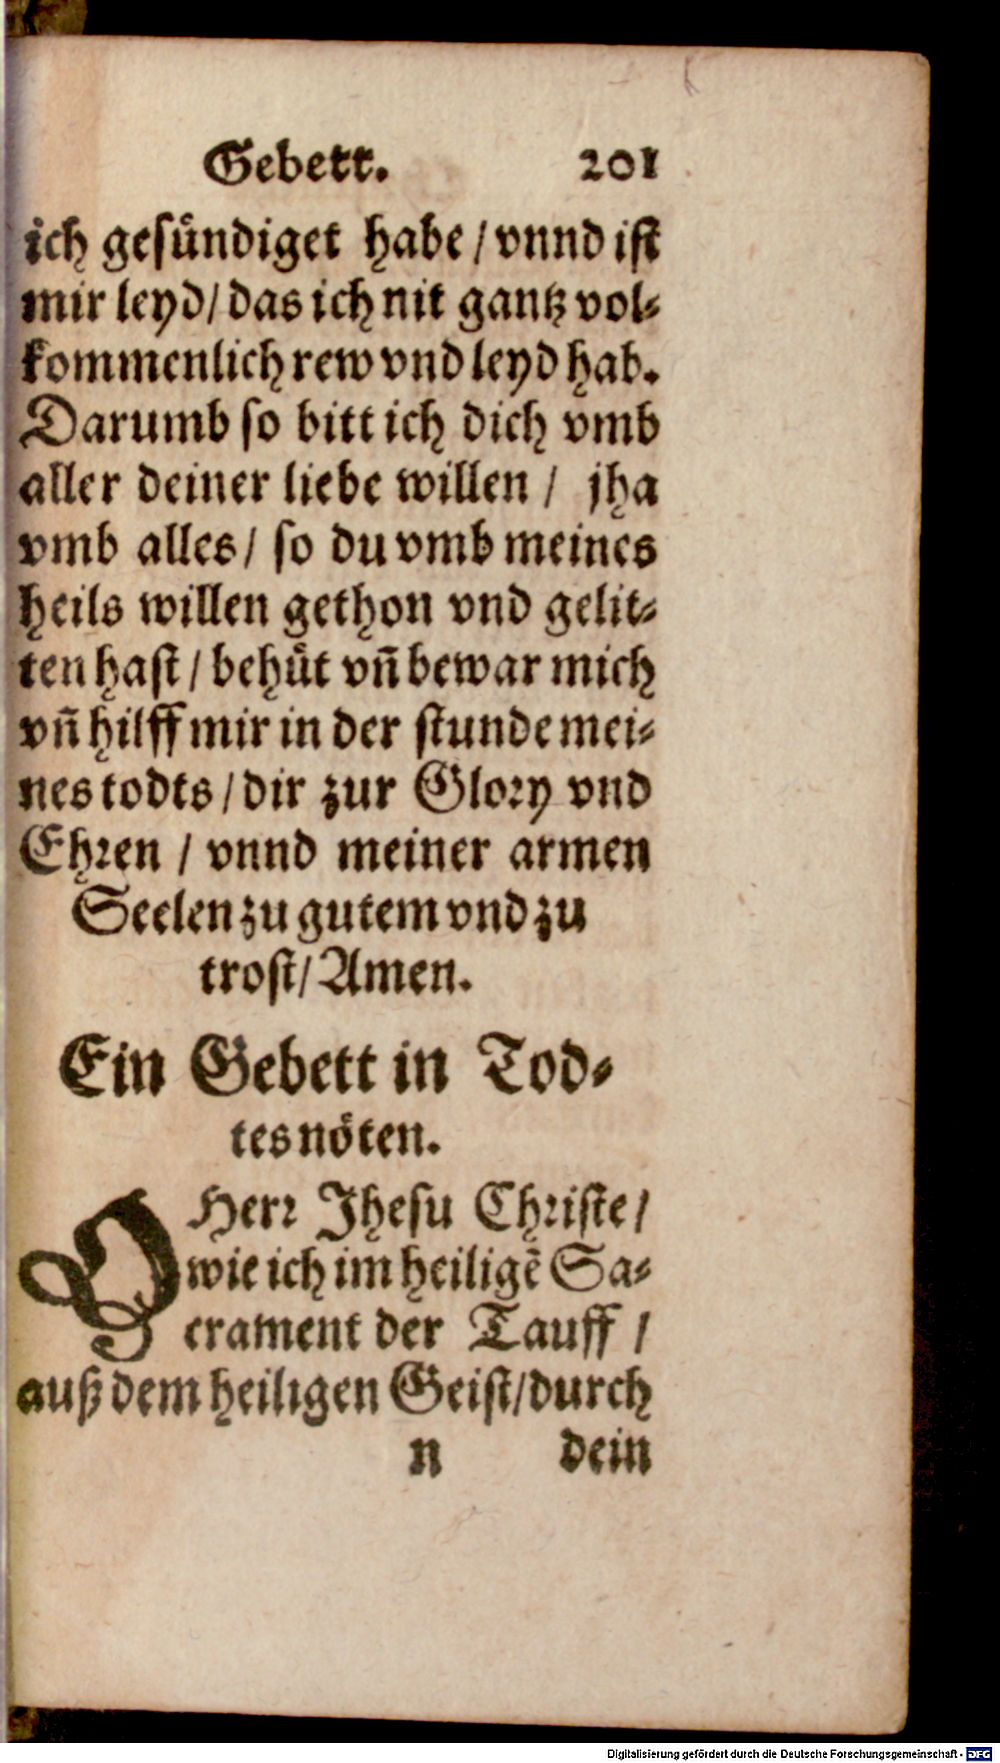 Gebett. 201
ich gesündiget habe / vnnd ist
mir leyd / das ich nit gantz vol-
kommenlich rew vnd leyd hab.
Darumb so bitt ich dich vmb
aller deiner liebe willen / jha
vmb alles / so du vmb meines
heils willen gethon vnd gelit-
ten hast / behüt vñ bewar mich
vñ hilff mir in der stunde mei-
nes todts / dir zur Glory vnd
Ehren / vnnd meiner armen
Seelen zu gutem vnd zu
trost / Amen.
Ein Gebett in Tod-
tesnöten.
O Herr Jhesu Christe /
wie ich im heiligẽ Sa-
crament der Tauff /
auß dem heiligen Geist / durch
n dein
Digitalisierung gefördert durch die Deutsche Forschungsgemeinschaft - DFG